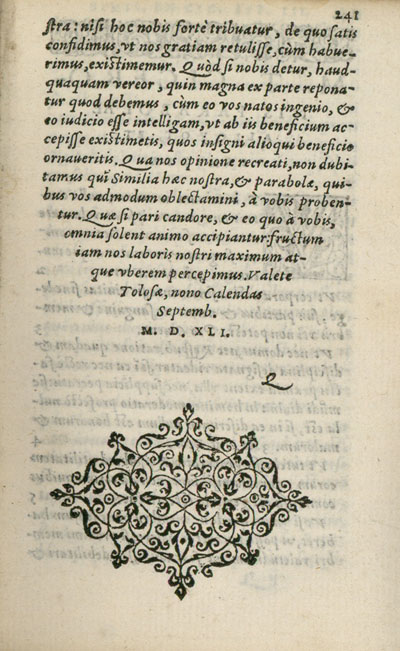 241
stra: nisi hoc nobis forte tribuatur, de quo satis
confidimus, vt nos gratiam retulisse, cùm habue-
rimus, existimemur. Quòd si nobis detur, haud-
quaquam vereor, quin magna ex parte repona-
tur quod debemus, cùm eo vos natos ingenio, &
eo iudicio esse intelligam, vt ab iis beneficium ac-
cepisse existimetis, quos insigni alioqui beneficio
ornaueritis. Qua nos opinione recreati, non dubi-
tamus quĩ Similia hæc nostra, & parabolæ, qui-
bus vos admodum oblectamini, à vobis proben-
tur. Quæ si pari candore, & eo quo à vobis,
omnia solent animo accipiantur: fructum
iam nos laboris nostri maximum at-
que vberem percepimus. Valete
Tolosæ, nono Calendas
Septemb.
M. D. XLI.
Q